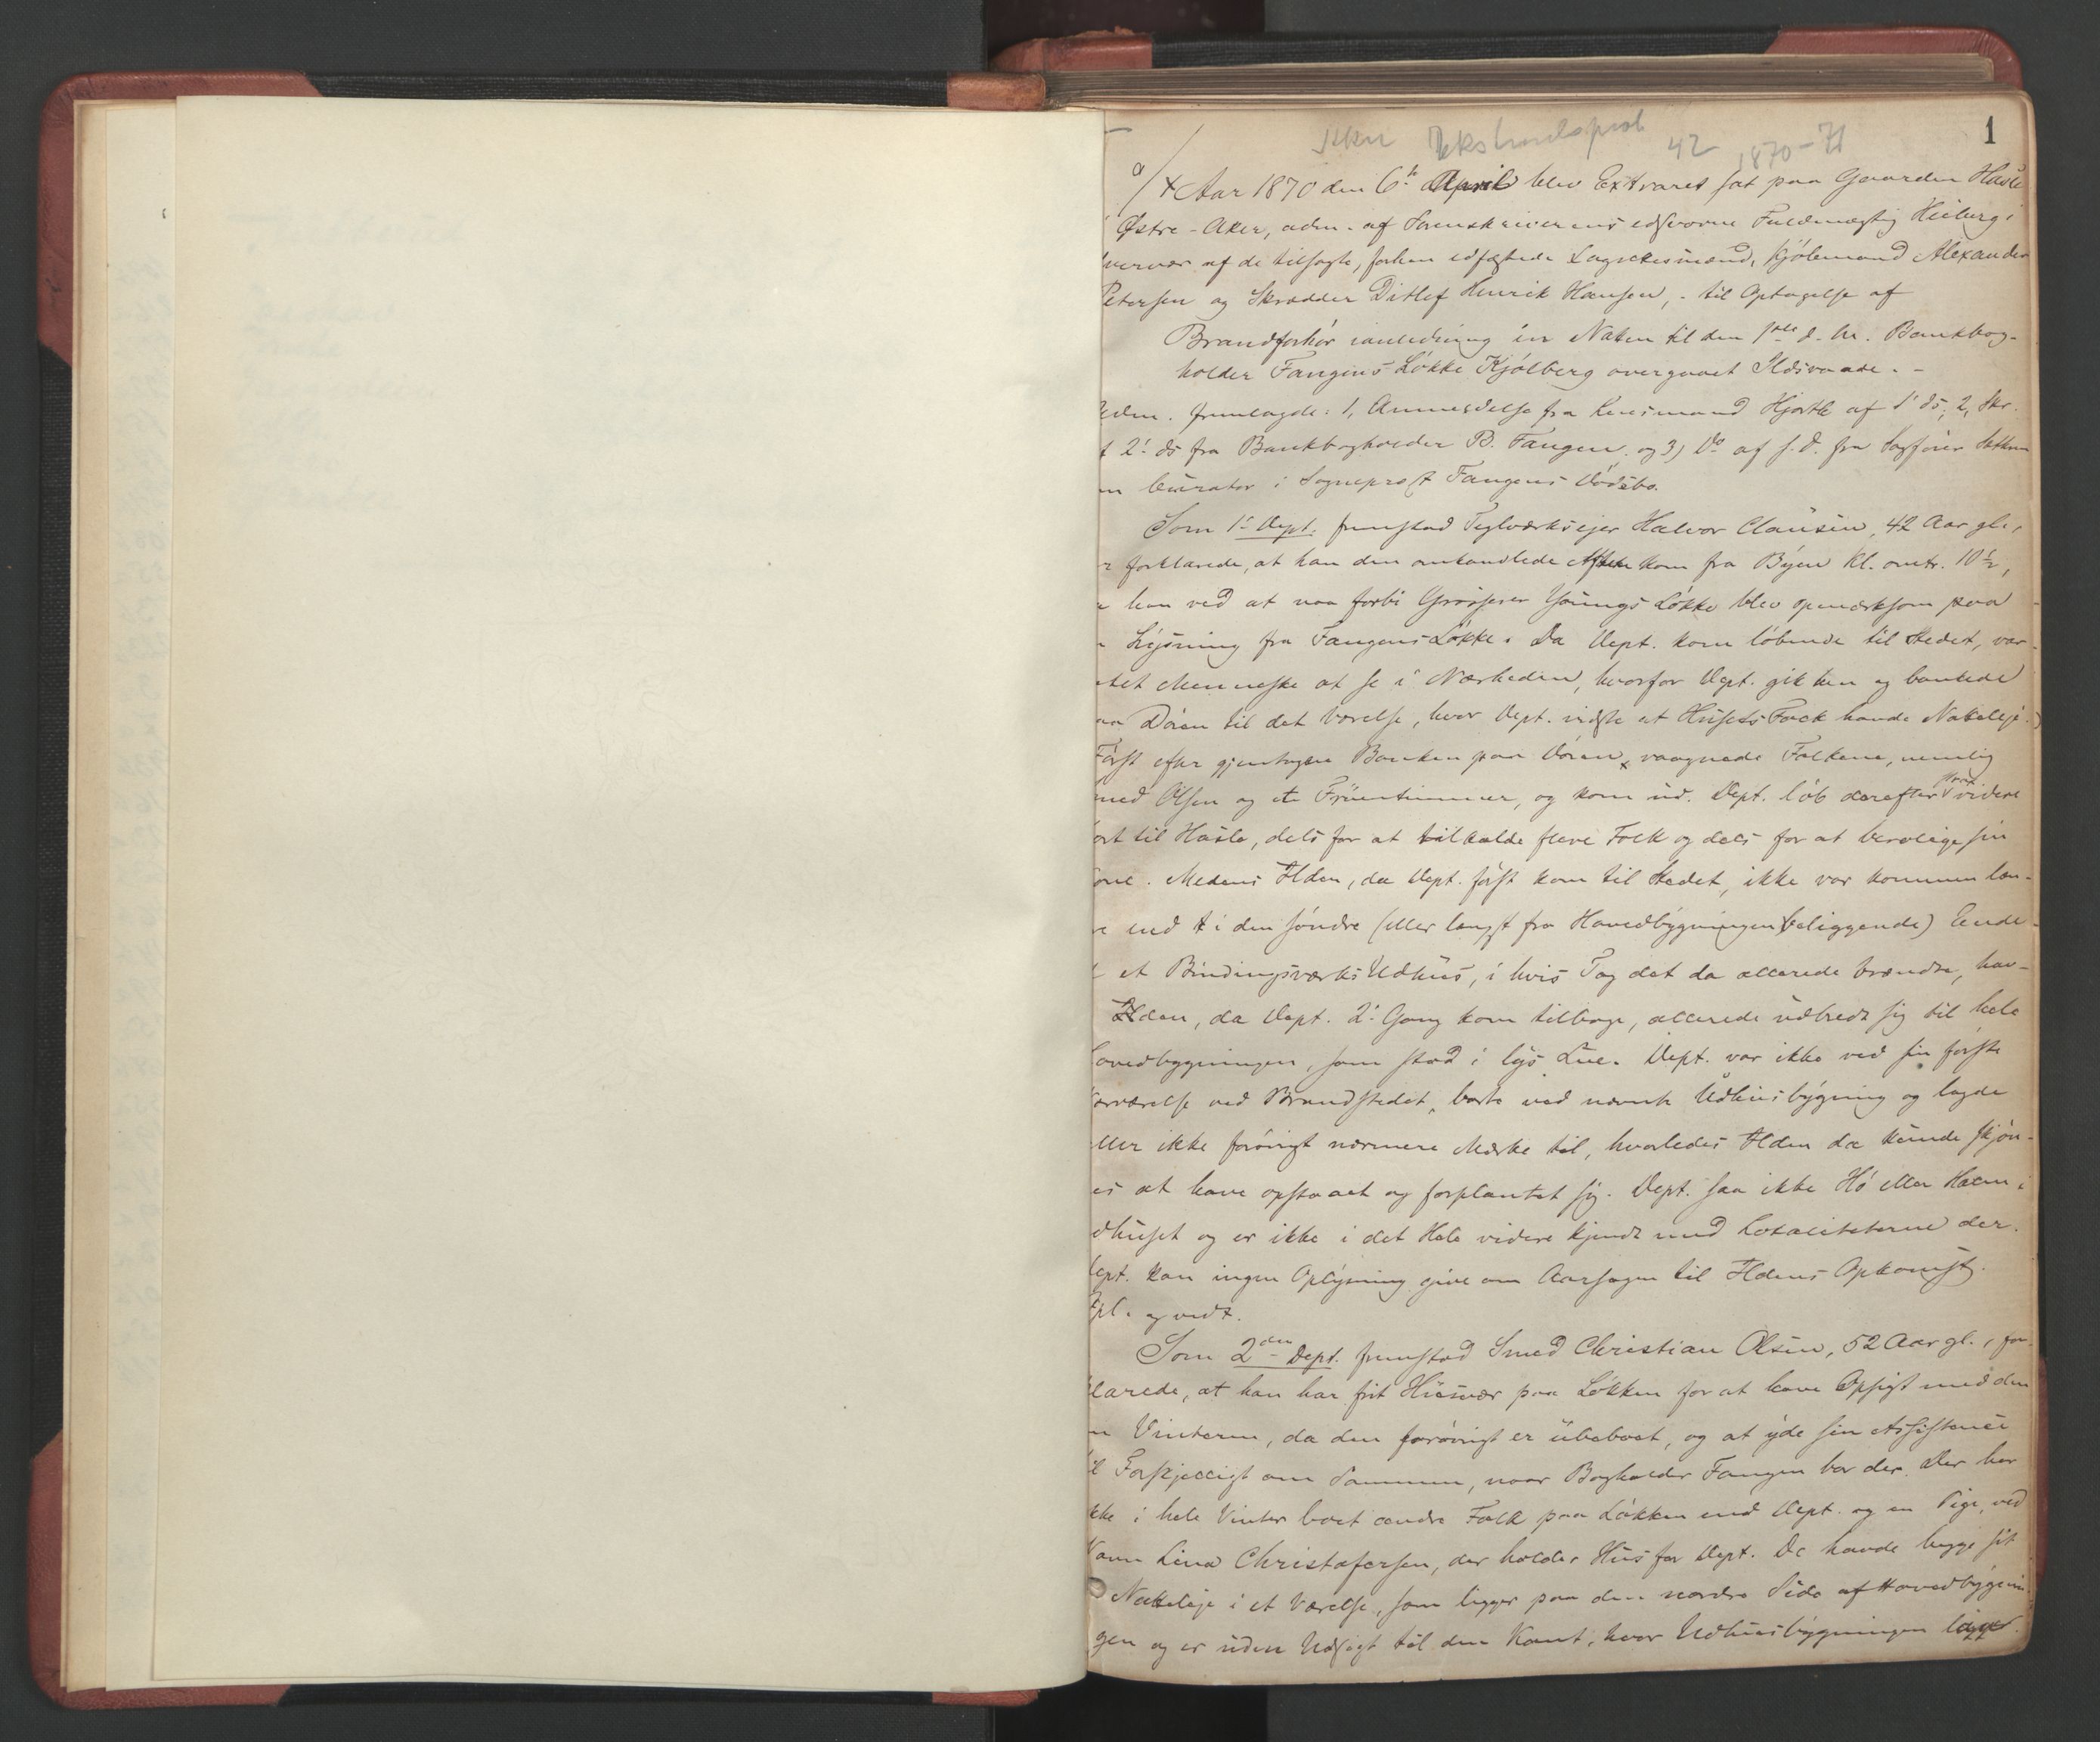 1
42 1870-71
a/ x Aar 1870 den 6te April blev Extraret sat paa Gaarden Hasle i
Østre-Aker, adm. af Sorenskriverens edsvorne Fuldmægtig Hieberg i
Overvær af de tilsagte, forhen edfæstede Lagrettesmænd, Kjøbmand Alexander
Petersen og Skrædder Ditlef Henrik Hansen, - til Optagelse af
Brandforhør i anledning in Natten til den 1ste d. M. Bankbog-
holder Fangens Løkke Kjølberg overgaaet Ildsvaade. -
Adm. fremlagde: 1, Anmeldelse fra Lensmand Hjorth af 1' ds; 2, Skr.
f 2' ds fra Bankbogholder B. Fangen og 3) Do af s. D. fra Sagfører
m Curator i Sogneprest Fangens Dødsbo.
Som 1' Dept. fremstod Teglværkseier Halvor Clausen, 42 Aar gl.,
r forklarede, at han den omhandlede Aften kom fra Byen Kl. omtr. 10½,
a han ved at naa forbi Grosserer Youngs Løkke blev opmærksom paa
n Lysning fra Fangens Løkke. Da Dept. kom løbende til Stedet, var
ntet Menneske at se i Nærheden, hvorfor Dept. gik hen og bankede
aa Døren til det Værelse, hvor Dept. vidste at Husets Folk havde Natteleje.
Først efter gjentagen Banken paa Døren x vaagnede Folkene, nemlig
med Olsen og et Fruentimmer, og kom ud. Dept. løb derefter strax videre
ort til Hasle, dels for at tilkalde flere Folk og dels for at berolige sin
one. Medens Ilden, da Dept. først kom til Stedet, ikke var kommen læn-
re end t i den søndre (eller længst fra Hovedbygningen beliggende) Ende
f et Bindingsværks Udhus, i hvis Tag det da allerede brændte, hav-
Ilden, da Dept. 2' Gang kom tilbage, allerede udbredt sig til hele
ovedbygningen, som stod i lys Lue. Dept. var ikke ved sin første
ærværelse ved Brandstedet, borte ved nævnte Udhusbygning og lagde
ller ikke forøvrigt nærmere Mærke til, hvorledes Ilden da kunde skjøn-
es at have opstaaet og forplantet sig. Dept. saa ikke Hø eller Halm i
dhuset og er ikke i det Hele videre kjendt med Lokaliteterne der.
ept. kan ingen Oplysning give om Aarsagen til Ildens Opkomst.
Opl. og vedt.
Som 2den Dept. fremstod Smed Christian Olsen, 52 Aar gl., for-
larede, at han har frit Huusvær paa Løkken for at have Opsigt med den
m Vinteren, da den forøvrigt er ubeboet, og at yde sin Assistence
il Forskjelligt om Sommeren, naar Bogholder Fangen bor der. Der har
kke i hele Vinter boet andre Folk paa Løkken end Dept. og en Pige, ved
avn Lina Christofersen, der holder Hus for Dept. De havde begge sit
Natteleje i et Værelse, som ligger paa den nordre Side af Hovedbygnin-
gen og er uden Udsigt til den Kant, hvor Udhusbygningen ligger.